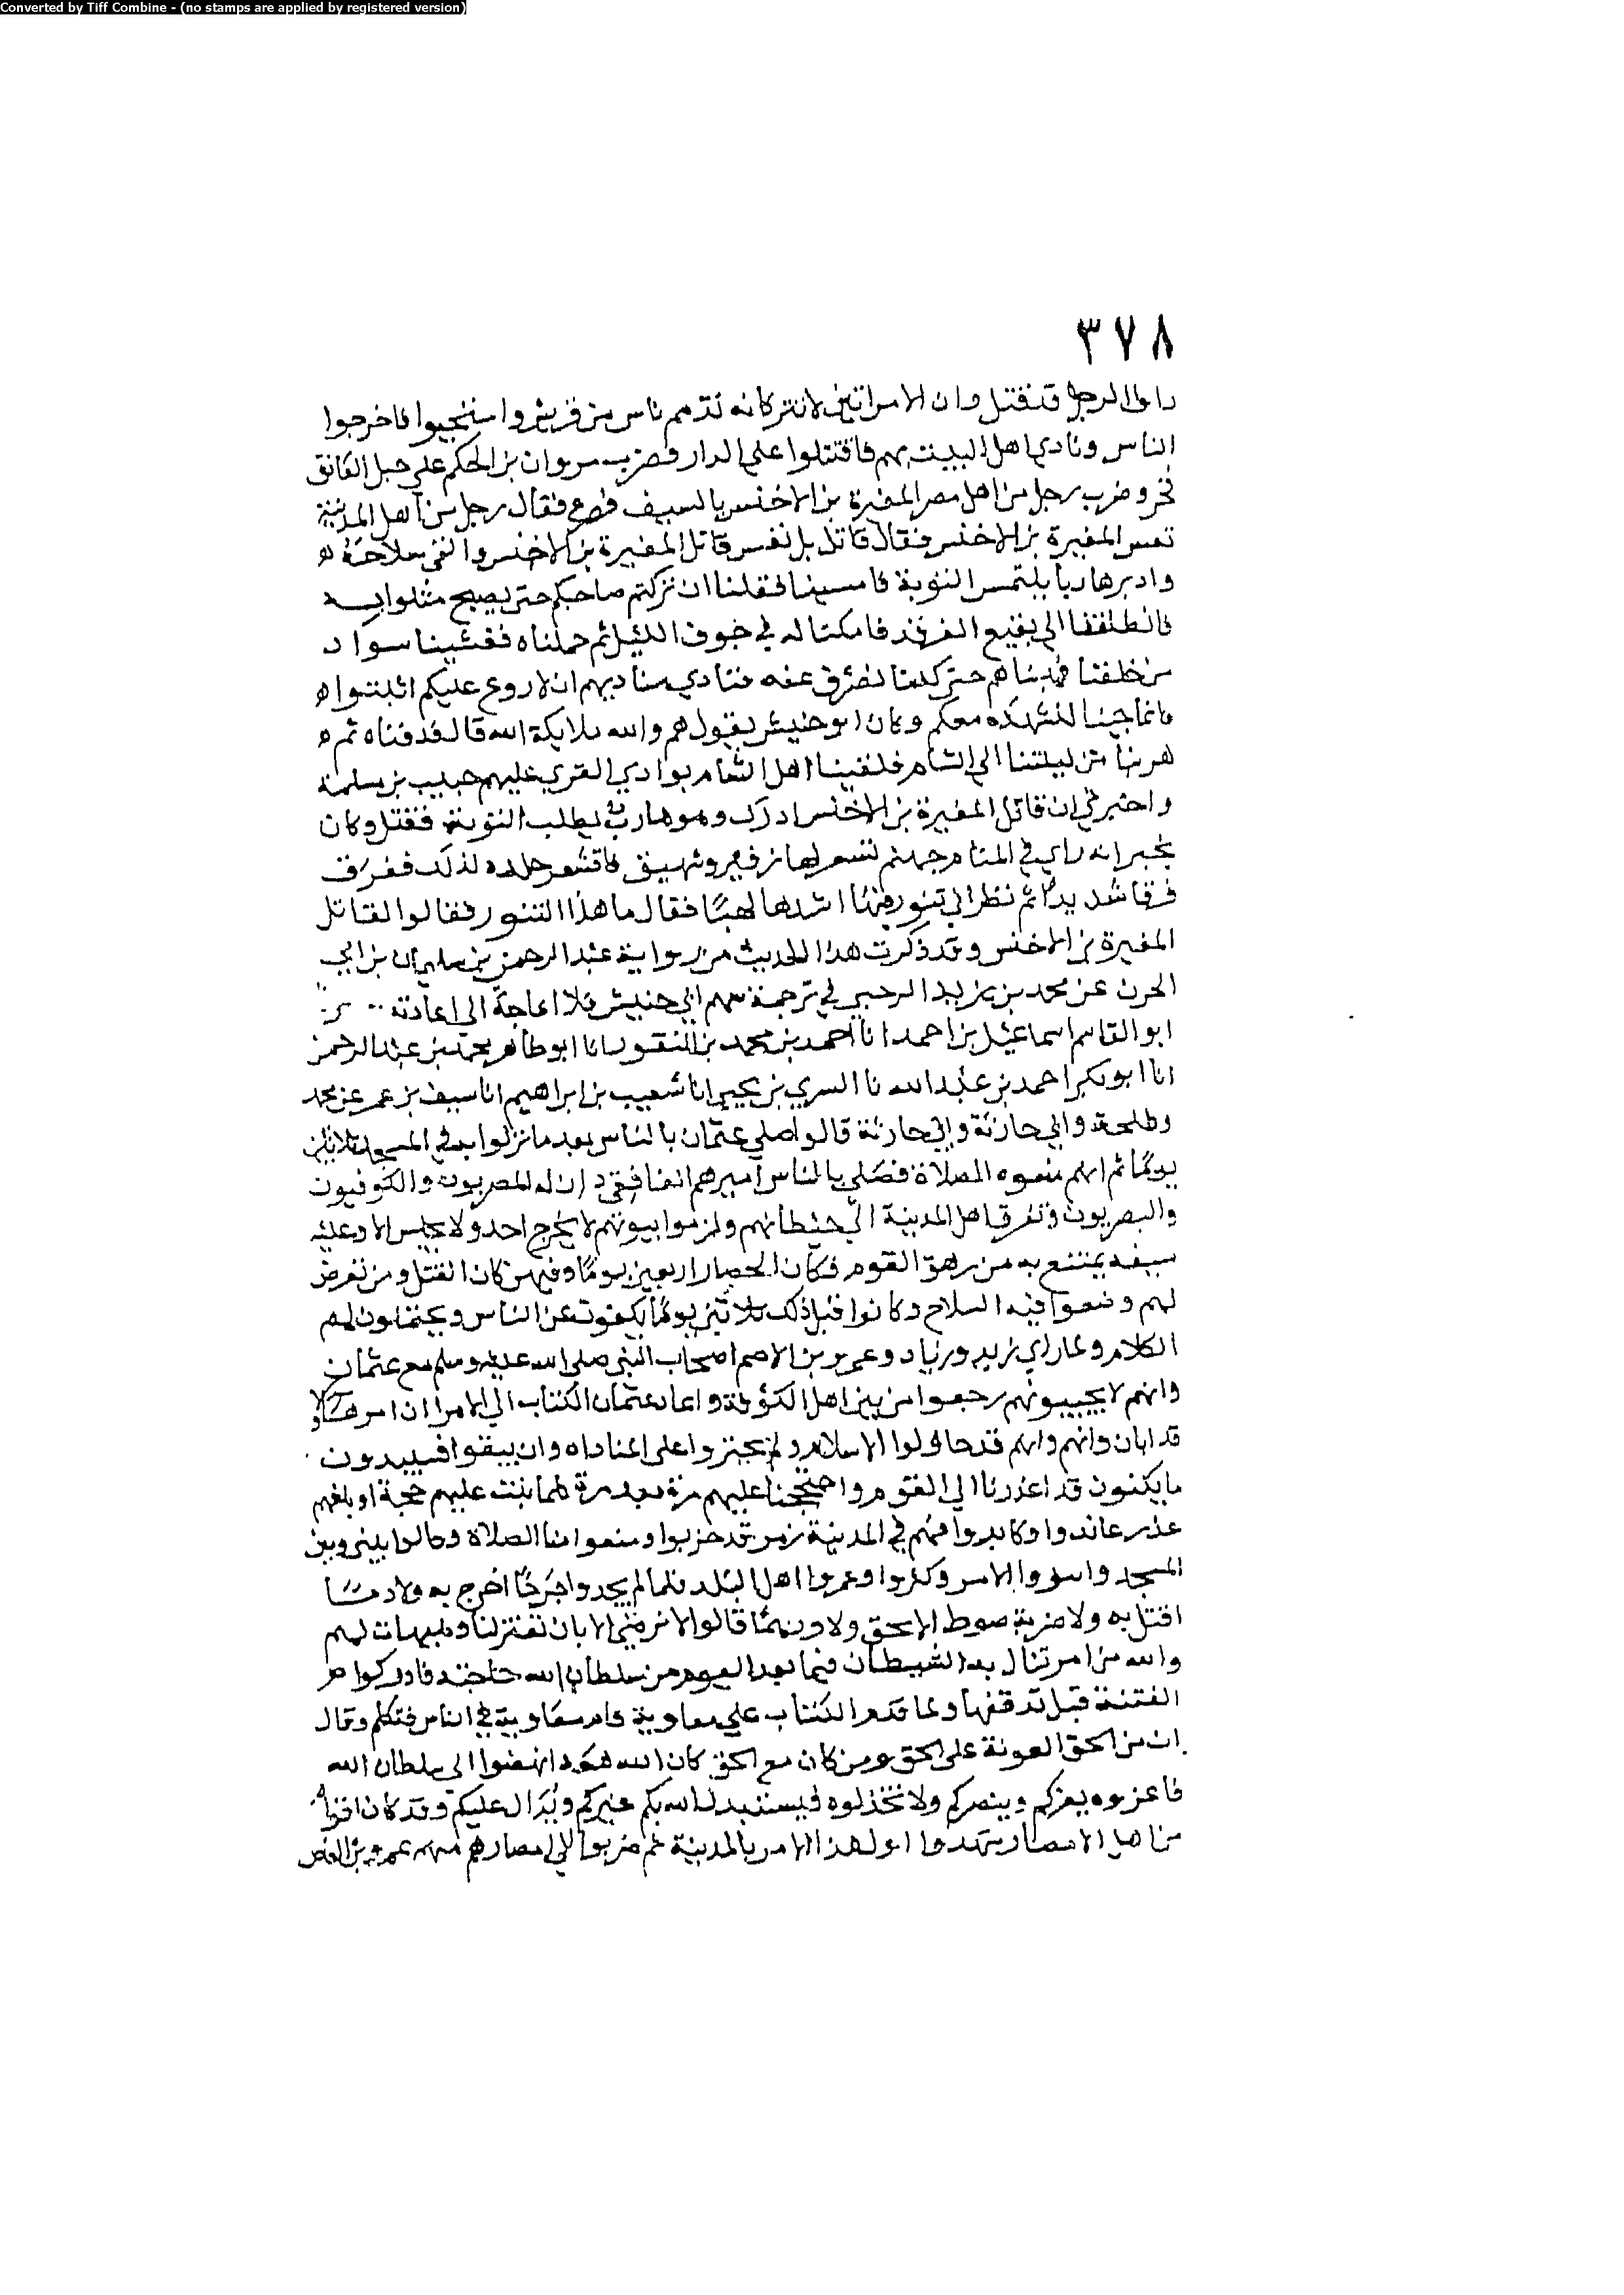 Converted by Tiff Combine - (no stamps are applied by registered version)
٣٧٨
الرجل قد قتل وان الامراتين لا تتركانه تذمم ناس من قريش واستحيوا فاخرجوا
الناس ونادي اهل البيت بهم فاقتتلوا على الدار فضرب مروان بن الحكم على حبل العاتق
فخر وضرب رجل من اهل مصر المغيرة بن الاخنس بالسيف فصرع فقال رجل من اهل المدينة
تعس المغيرة بن الاخنس فقال قاتل بل تعس قاتل المغيرة بن الاخنس والقى سلاحه
وادبر هاربا يلتمس التوبة فامسينا فقلنا ان تركتم صاحبكم حتى يصبح مثلوا به
فانطلقنا الى بقيع الغرقد فامكنا له في جوف الليل ثم حملناه فغشينا سواد
من خلفنا فهبناهم حتى كدنا نفترق عنه فنادي مناديهم ان لا روع عليكم اثبتوا
فانما جينا لنشهده معكم وكان ابو حنيش يقول هم والله ملايكة الله قال فدفناه ثم
هربنا من ليلتنا الى الشام فلقينا اهل الشام بوادي القري عليهم حبيب بن مسلمة
واخبرني ان قاتل المغيرة بن الاخنس ادرك وهو هارب يطلب التوبة فقتل وكان
يخبر انه راي في المنام جهنم تسعر لها زفير وشهيق فاقشعر جلده لذلك ففرق
فرقا شديدا ثم نظر الى تنور منها اشدها لهبا فقال ما هذا التنور فقالوا لقاتل
المغيرة بن الاخنس وقد ذكرت هذا الحديث من رواية عبد الرحمن بن سليمان بن ابي
الجون عن محمد بن يزيد الرحبي في ترجمة سهم ابي حنيش فلا حاجة الى اعادته
ابو القاسم اسماعيل بن احمد انا احمد بن محمد بن النقور انا ابو طاهر محمد بن عبد الرحمن
انا ابو بكر احمد بن عبد الله نا السري بن يحيى انا شعيب بن ابراهيم انا سيف بن عمر عن محمد
وطلحة وابي حارثة وابي حارثة قالوا صلى عثمان بالناس بعد ما نزلوا به في المسجد ثلاثين
يوما ثم انهم منعوه الصلاة فصلى بالناس اميرهم الغافقي دان له المصريون والكوفيون
والبصريون وتفرق اهل المدينة الى حيطانهم ولزموا بيوتهم لا يخرج احد ولا يجلس الا وعليه
سيفه يمتنع به من رهق القوم فكان الحصار اربعين يوما وفيهن كان القتل ومن تعرض
لهم وضعوا فيه السلاح وكانوا قبل ذلك ثلاثين يوما يكفون عن الناس ويحتملون لهم
الكلام ولما راي زيد وزياد وعمرو بن الاصم اصحاب النبي صلى الله عليه وسلم مع عثمان
وانهم لا يجيبونهم رجعوا من بين اهل الكوفة واعاد عثمان الكتاب الى الامرا ان امر هاولا
قد ابان وانهم وانهم قد حاولوا الاسلام ولم يجتزوا على المناداه وان يبقوا فسيبدون
ما يكنون قد اعذرنا الى القوم واحتججنا عليهم مرة بعد مرة كلما ثبتت عليهم حجة او بلغهم
عذر عاندوا وكابروا فهم في المدينة زمر قد حزبوا ومنعوا منا الصلاة وحالوا بيني وبين
المسجد وكثروا وعمروا اهل البلد فلما لم يجدوا جرحا اخرج به ولا دما
اقتل به ولا ضربة سوط الا بحق ولا درهما قالوا لا نرضى الا بان تعتزلنا وهيهات لهم
والله من امر تنال به الشيطان فيما بعد اليوم من سلطان الله حاجته فادركوا
الفتنة قبل تدفقها ولما قدم الكتاب على معاوية قام معاوية في الناس فتكلم وقال
ان من الحق المعونة على الحق ومن كان مع الحق كان الله معه انهضوا الى سلطان الله
فاعزوه يعزكم وينصركم ولا تخذلوه فيستبدل الله بكم غيركم ويدال عليكم وقد كان
من اهل الامصار شهدوا اول هذا الامر بالمدينة ثم ضربوا الى امصارهم منهم عمرو بن العاص